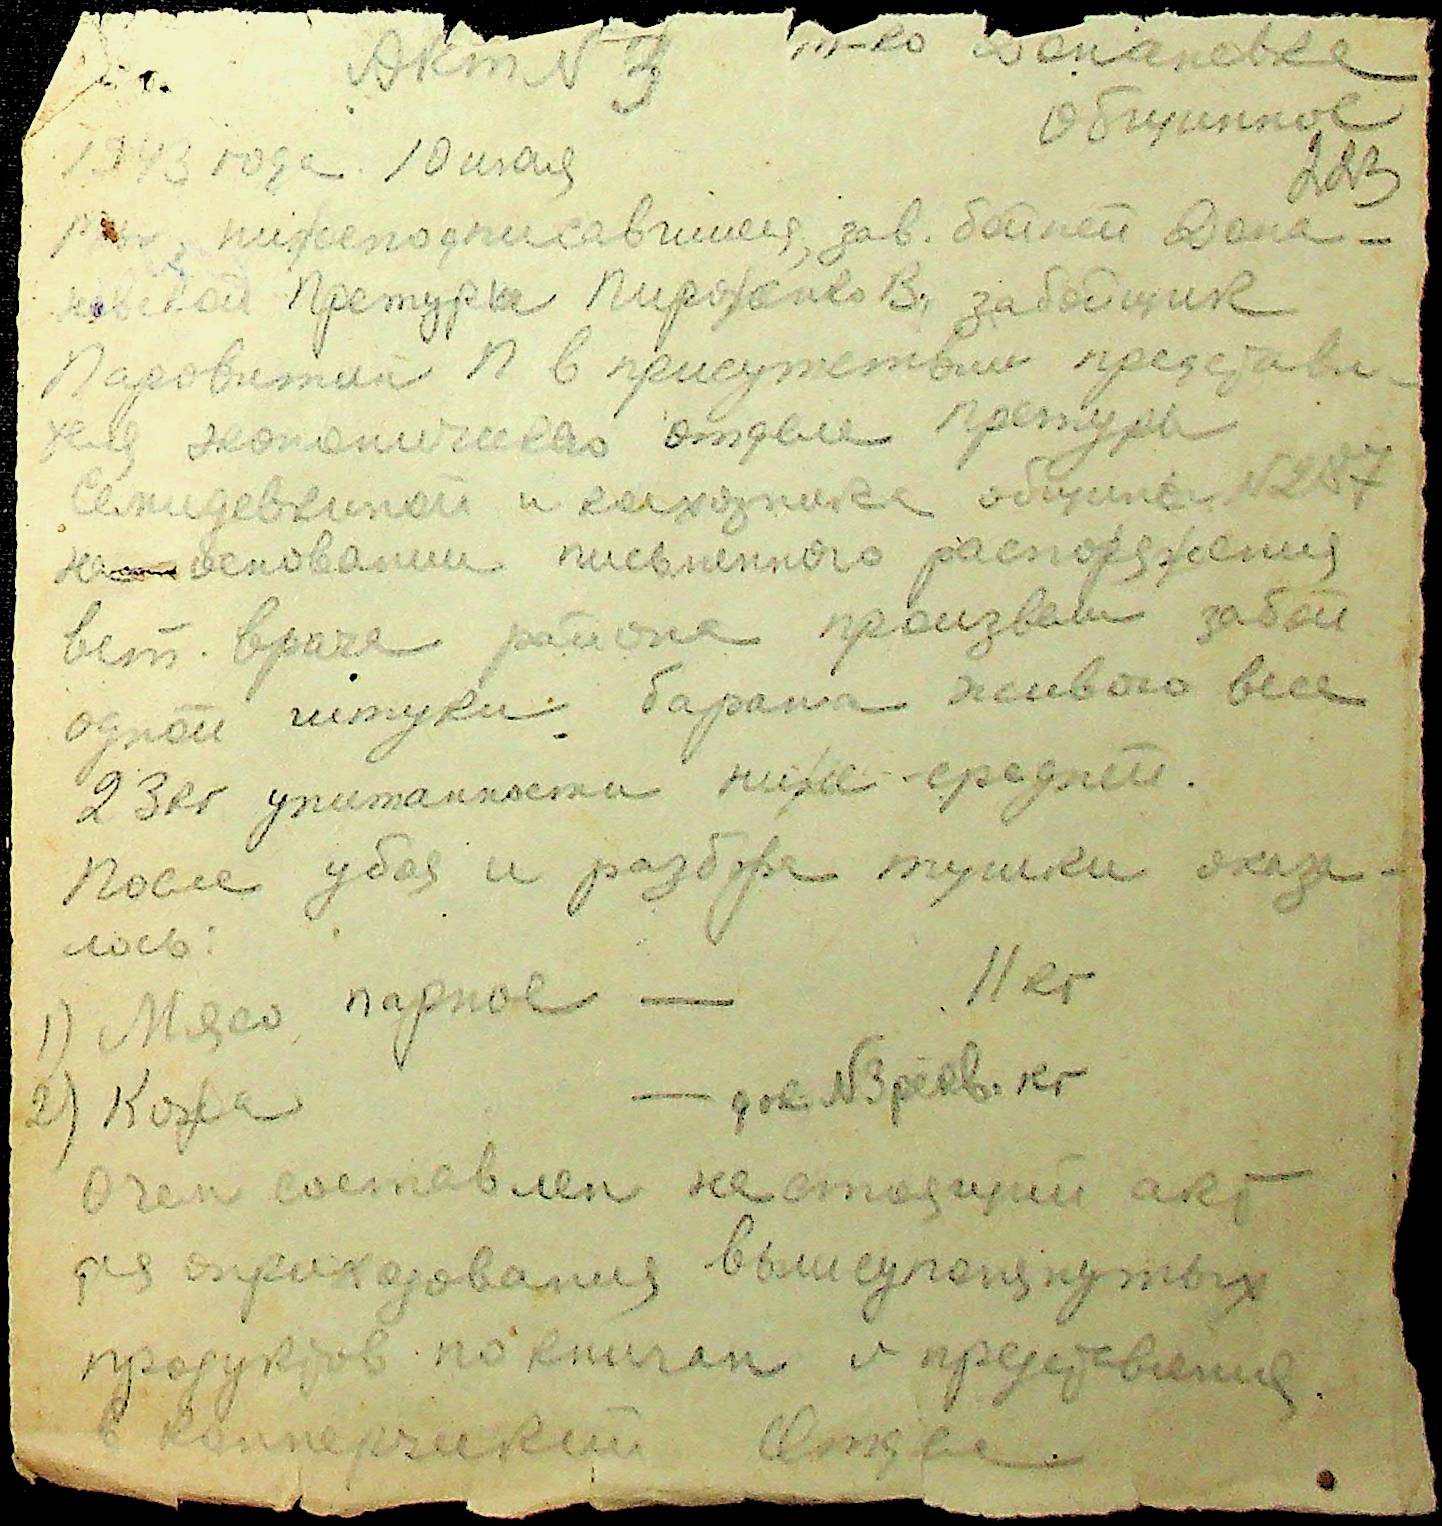 Акт N 3 м-ко Доманевка
Общинное
1943 года 10 мая 223
Мы, нижеподписавшиеся, зав. бойней Дома-
невской Претуры Пироженко В, забойщик
Паровитий П в присутствии представи-
теля экономическаго отдела Претуры
Семидевкиной и колхозника общины N 287
на основании письменного распоряжения
вет. врача района произвели забой
одной штуки барана живого веса
23 кг упитанности ниже-средней.
После убоя и разбора тушки оказа-
лось:
1) Мясо парное — 11 кг
2) Кожа — док. N 3 рекв. кг
О чем составлен настоящий акт
для оприходования вышеупомянутых
продуктов по книгам и представления
в коммерческий Отдел.